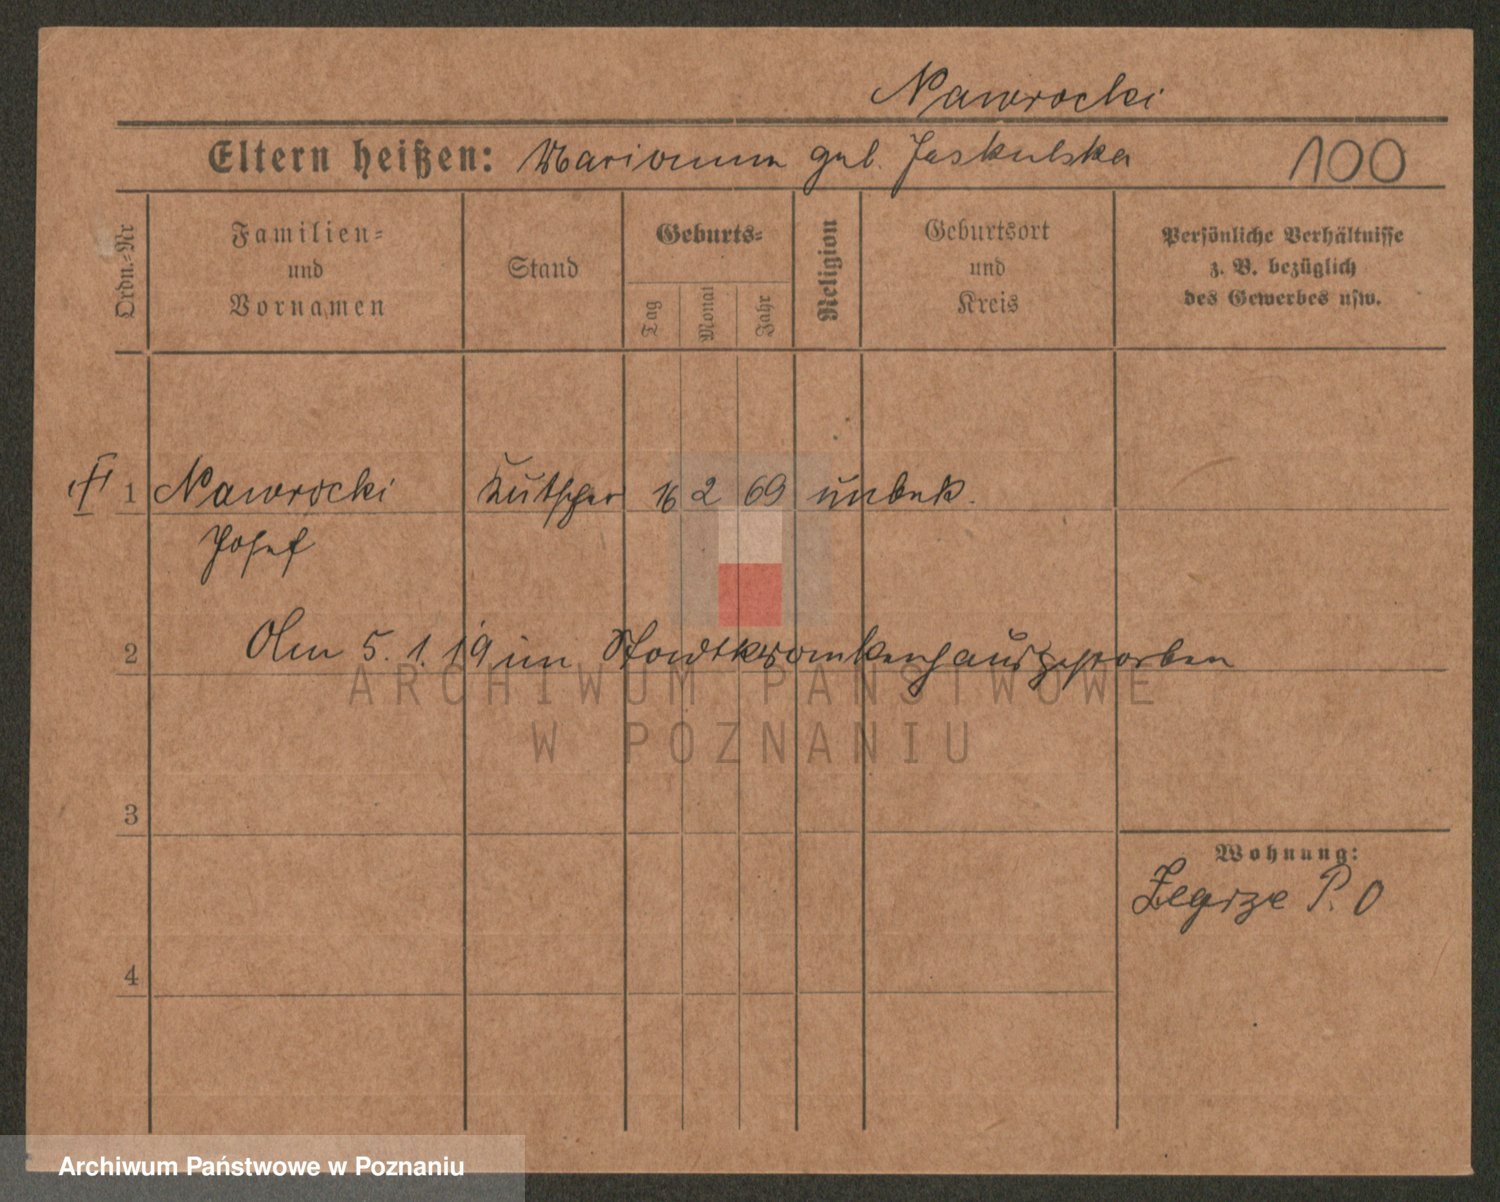 Nawrocki
Eltern heißen: Marianna geb. Jaskulska 100
Ordn.-Nr
Familien-
und
Vornamen
Stand
Geburts-
Tag Monat Jahr
Religion
Geburtsort
und
Kreis
Persönliche Verhältnisse
z. B. bezüglich
des Gewerbes usw.
1 Nawrocki Kutscher 16 2 69 unbek.
Josef
2 Am 5.1.19 im Stadtkrankenhaus gestorben
ARCHIWUM PAŃSTWOWE
W POZNANIU
3
Wohnung:
Zegrze P. O
4
Archiwum Państwowe w Poznaniu